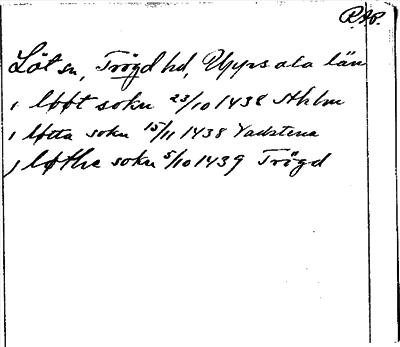 RAP.
Löt sn, Trögd hd, Uppsala län
i løøt sokn 23/10 1438 Sthlm
i løtta sokn 15/11 1438 Vadstena
j løthe sokn 5/10 1439 Trögd